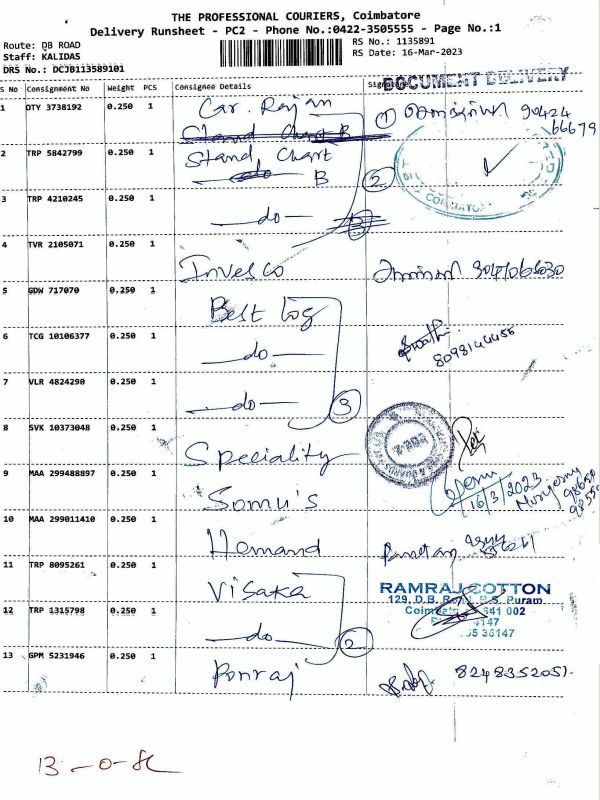 THE PROFESSIONAL COURIERS, Coimbatore
Delivery Runsheet - PC2 - Phone No.:0422-3505555 - Page No.:1
Route: DB ROAD
Staff: KALIDAS
DRS No.: DCJB113589101
RS No.: 1135891
RS Date: 16-Mar-2023
S No Consignment No Weight PCS Consignee Details Signature
DOCUMENT DELIVERY
1 DTY 3738192 0.250 1 Car. Rajan
Stand Chart B
2 TRP 5842799 0.250 1 Stand, Chart
do B 2
COIMBATORE
3 TRP 4210245 0.250 1 do
4 TVR 2105071 0.250 1 Invesco
5 GDW 717070 0.250 1 Best Log
6 TCG 10106377 0.250 1 do
7 VLR 4824290 0.250 1 do 3
8 SVK 10373048 0.250 1 Speciality
9 MAA 299488897 0.250 1 Somu's
16/3/2023
10 MAA 299011410 0.250 1 Hemand
11 TRP 8095261 0.250 1 Visaka
RAMRAJ COTTON
129, D.B. Road, R.S. Puram,
641 002
12 TRP 1315798 0.250 1 do 2
4147
36147
13 GPM 5231946 0.250 1 Ponraj 8248352051